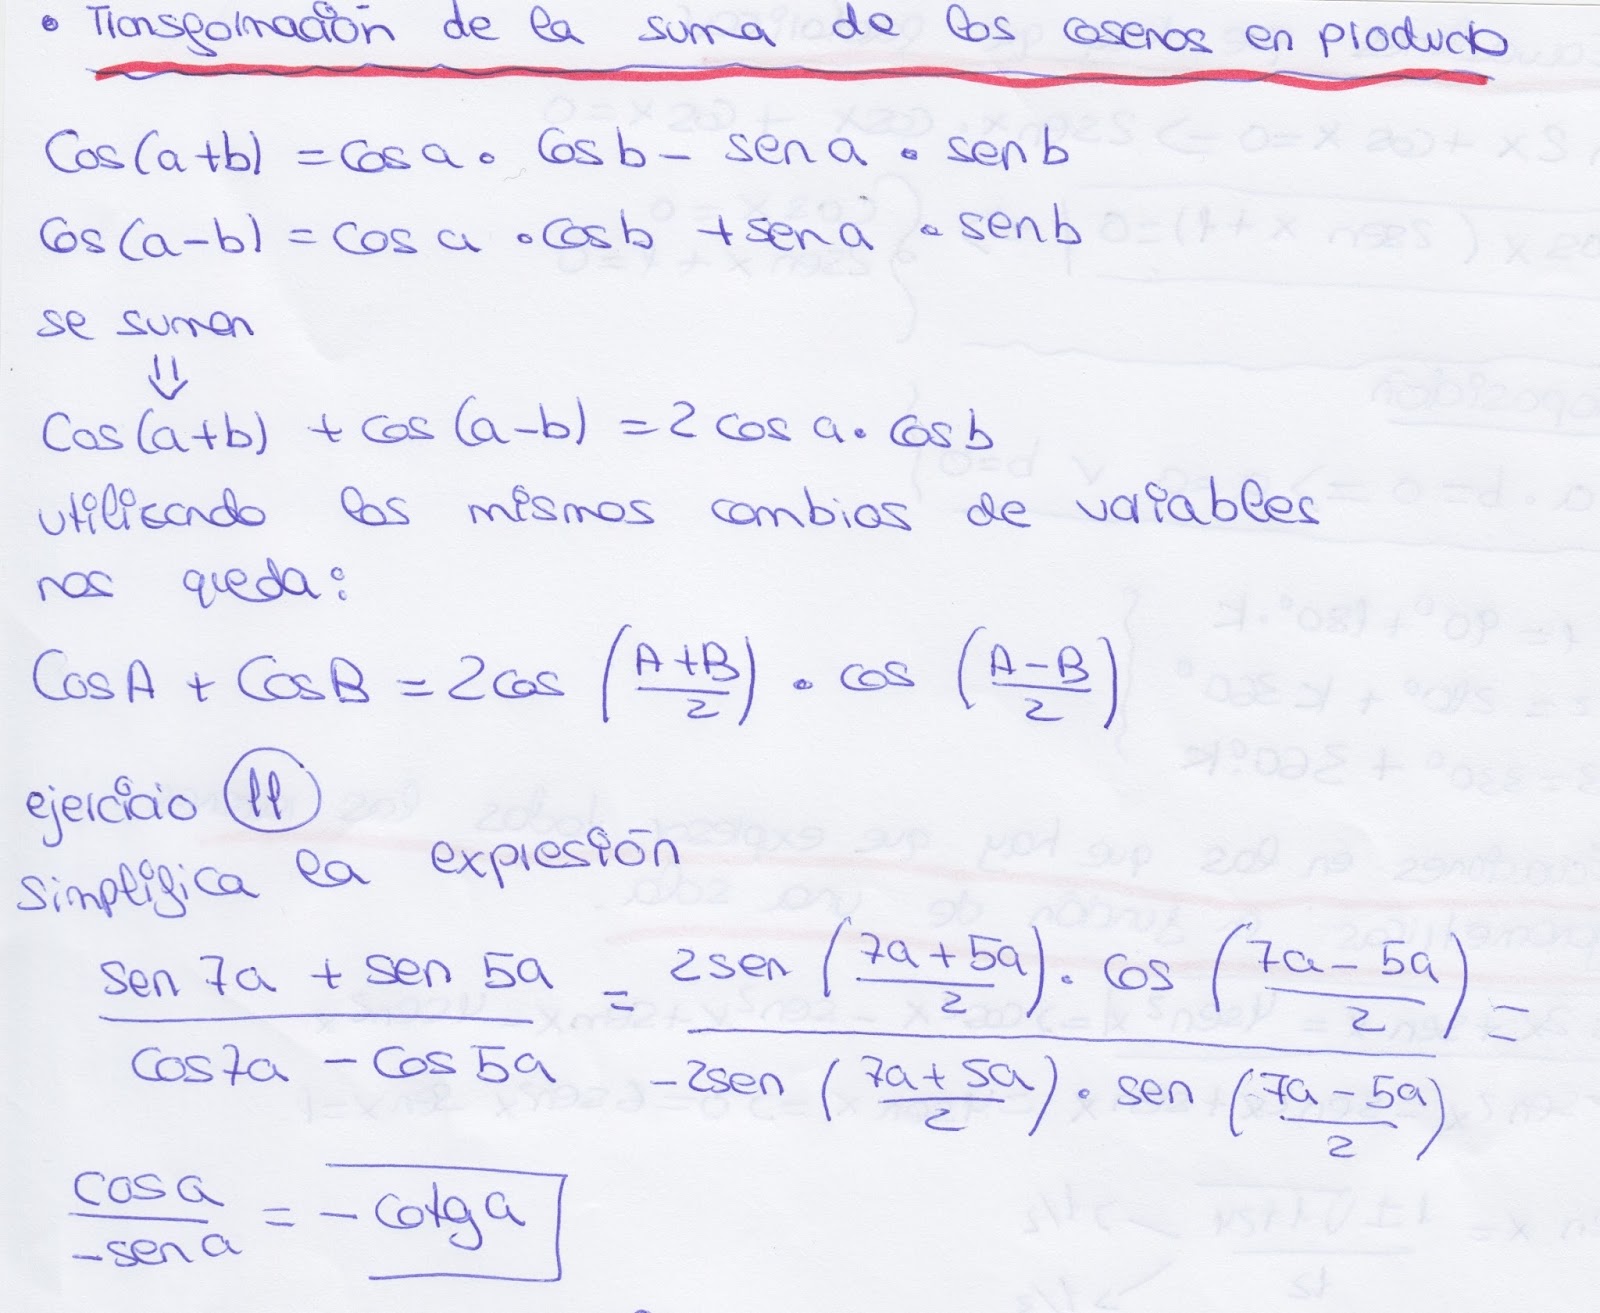 • Transformación de la suma de los cosenos en producto
Cos(a+b) = cos a • cos b - sen a • sen b
Cos(a-b) = cos a • cos b + sen a • sen b
se suman
⇓
Cos(a+b) + cos (a-b) = 2 cos a • cos b
utilizando los mismos cambios de variables
nos queda:
Cos A + Cos B = 2 cos ((A+B)/2) • cos ((A-B)/2)
ejercicio 11
simplifica la expresión
(sen 7a + sen 5a)/(cos 7a - cos 5a) = (2 sen ((7a+5a)/2) • cos ((7a-5a)/2))/(-2sen ((7a+5a)/2) • sen ((7a-5a)/2)) =
cos a/-sen a = - cotg a